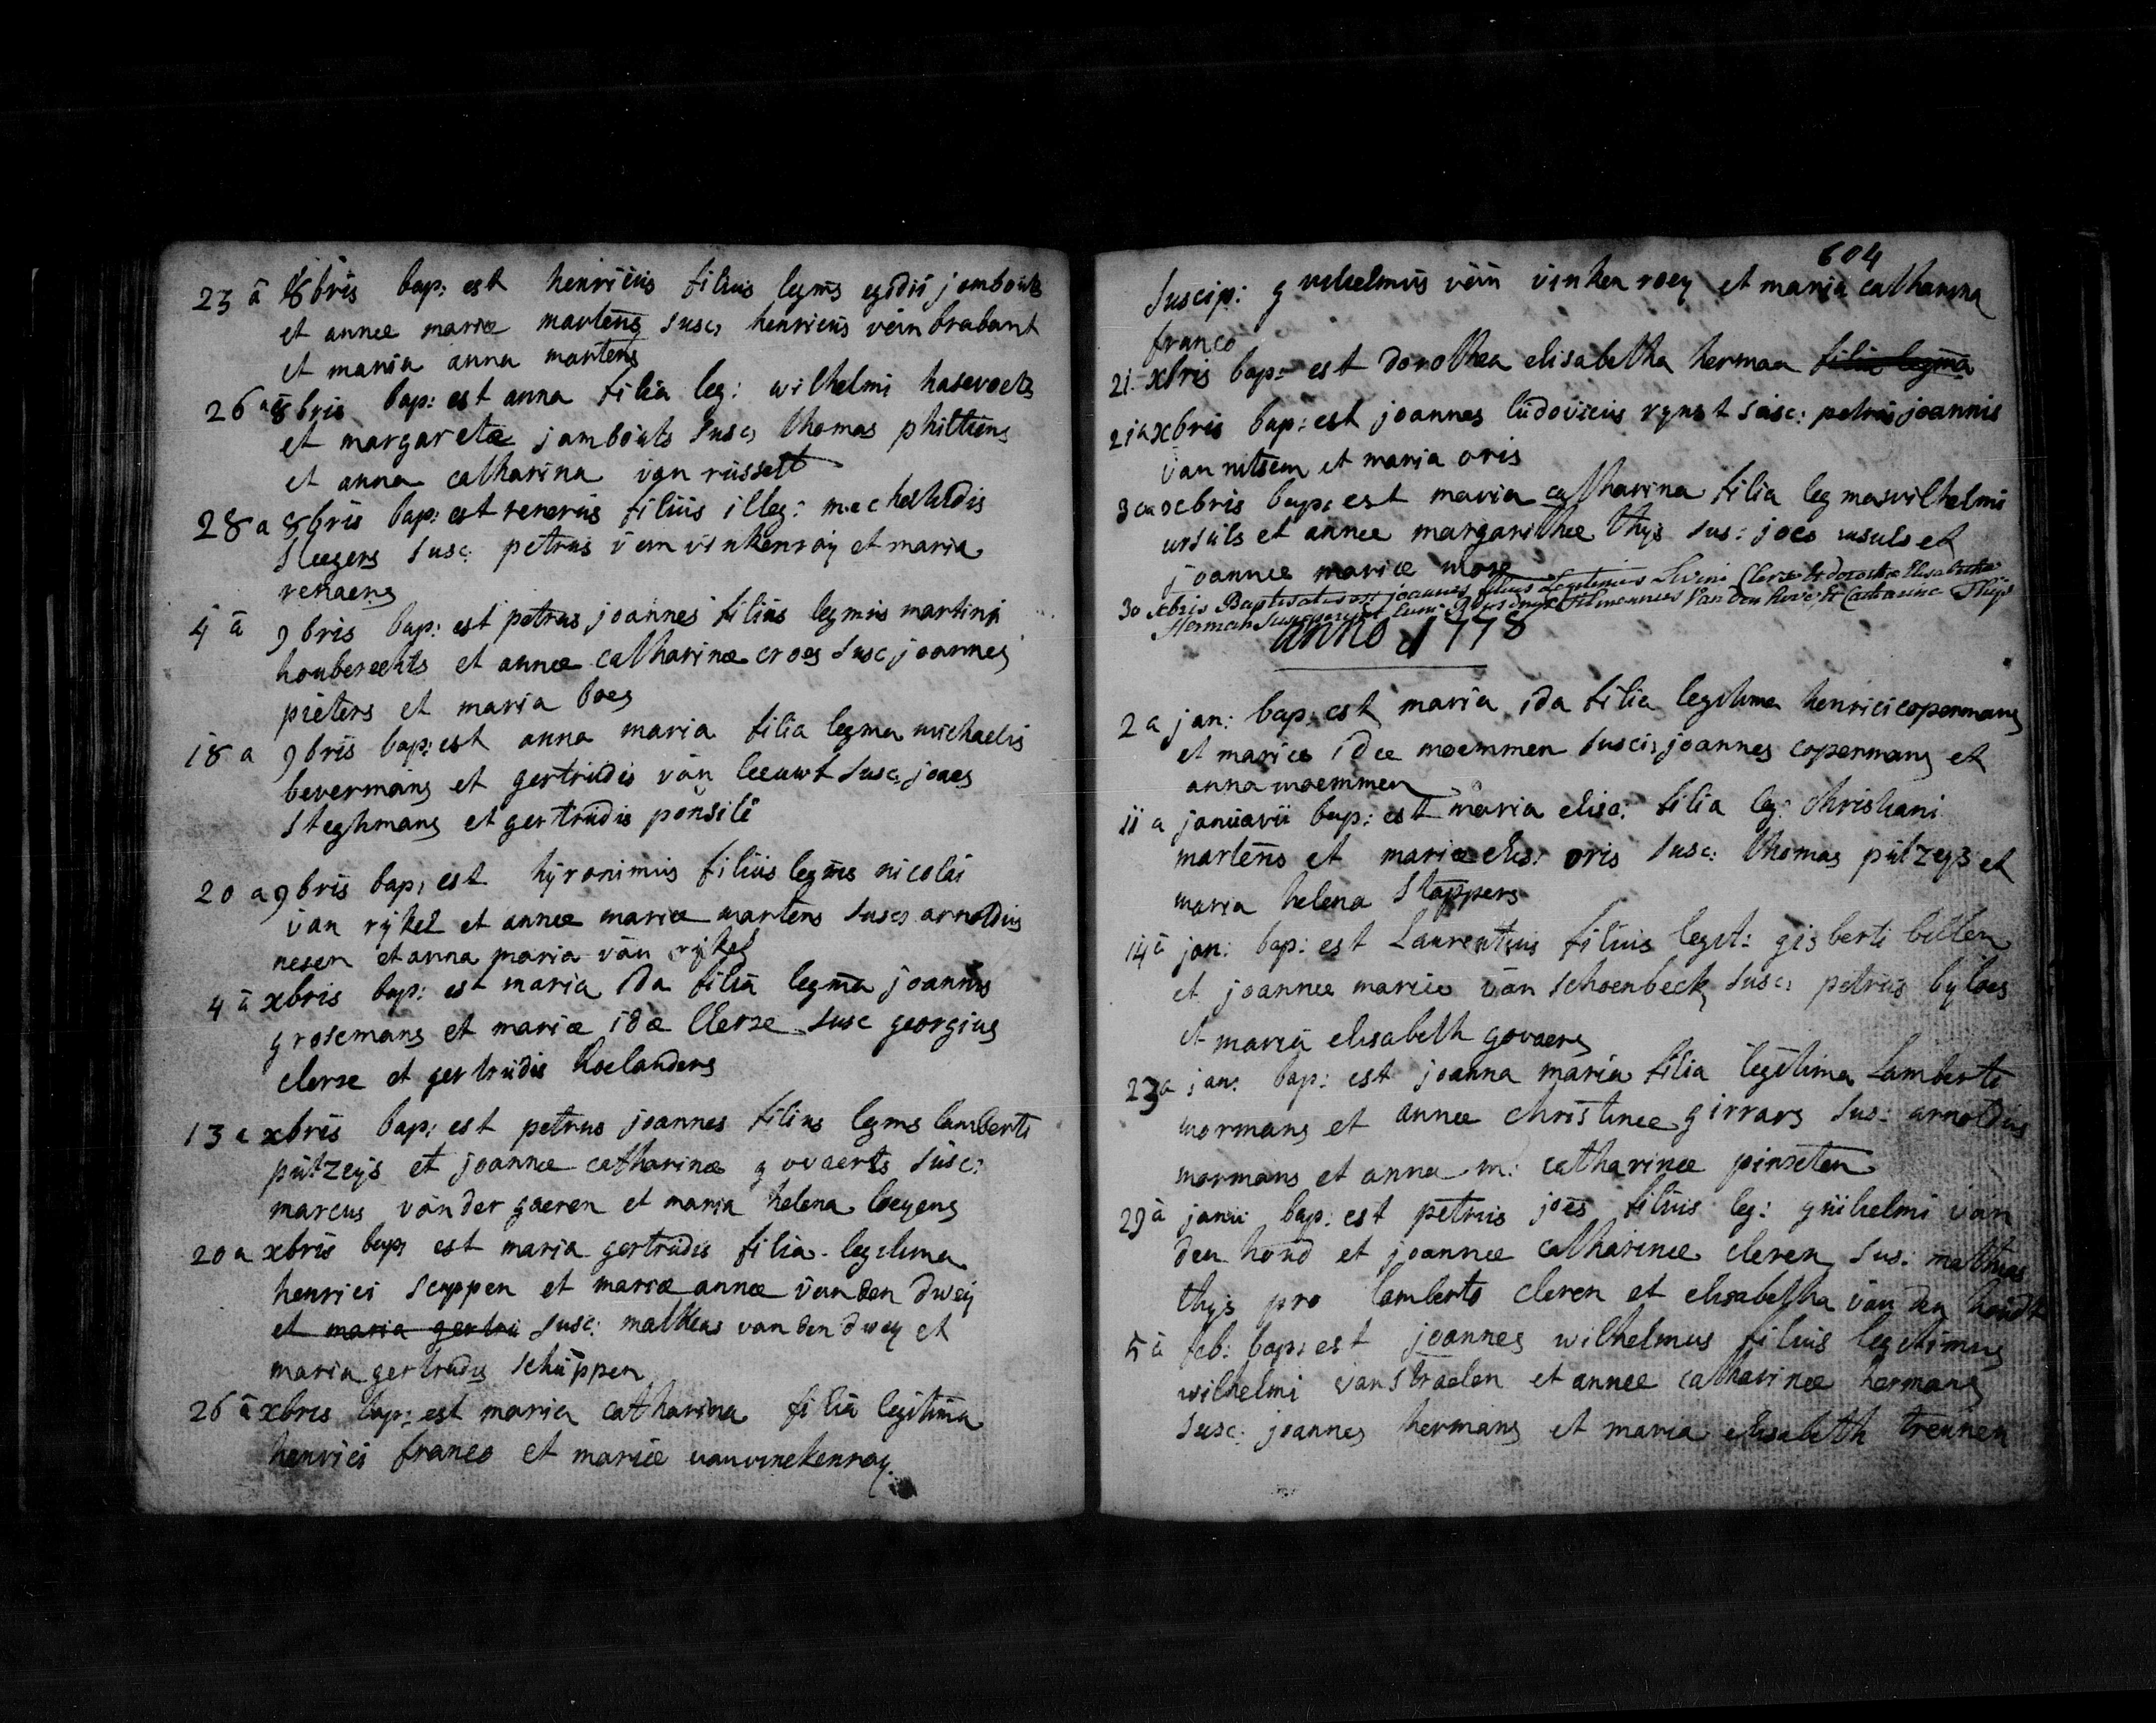 23 a 8bris bap: est henricus filius legms egidii jambouts
et annee mariæ martens susc: henricus van brabant
et maria anna martens
26 a 8bris bap: est anna filia leg: wilhelmi hasevoets
et margaretæ jambouts susc: thomas philtiens
et anna catharina van russelt
28 a 8bris bap: est renerus filius illeg: mechtildis
sleegers susc: petrus van vinkenroÿ et maria
renaens
4 a 9bris bap: est petrus joannes filius legmus martini
houberechts et annæ catharinæ croes susc joannes
pieters et maria boes
18 a 9bris bap: est anna maria filia legma michaelis
bevermans et gertrudis van leeuwt susc: joaes
steghmans et gertrudis ponsile
20 a 9bris bap: est hyronimus filius legms nicolai
van rÿkel et annæ mariæ martens susc: arnoldus
nesen et anna maria van rÿkel
4 a xbris bap: est maria ida filia legma joannis
grosemans et mariæ idæ Clerse susc georgius
clerse et gertrudis hoelanders
13 a xbris bap: est petrus joannes filius legms lamberti
putzeÿs et joannæ catharinæ govaerts susc:
marcus vander gaeren et maria helena loeyens
20 a xbris bap: est maria gertrudis filia legitima
henrici scuppen et mariæ annæ van den dweÿ
et maria gertru susc: mathias van den dweÿ et
maria gertrudis schuppen
26 a xbris bap: est maria catharina filia legitima
henrici franco et mariæ van vinckenroy
604
Suscip: guilielmus van vinkenroey et maria catharina
franco
21 xbris bap: est dorothea elisabetha herman filia legma
21 a xbris bap: est joannes ludovicus rynst susc: petrus joannis
van nitsem et maria oris
30 a xbris bap: est maria catharina filia legma wilhelmi
ursuls et annee margarithee thÿs sus: joes ursuls et
joannee mariæ
30 xbris Baptisatus est joannes filius Legitimus Livini Clerx et dorothea Elisabetha
Herman susceperunt van den hove et Catharina Thijs
anno 1778
2 a jan: bap: est maria ida filia legitima henrici copermans
et mariæ idæ moemmen susci: joannes copermans et
anna moemmen
11 a januarii bap: est maria elisa: filia leg: christiani
martens et mariæ elis: oris susc: thomas putzeÿs et
maria helena stappers
14 a jan: bap: est Laurentius filius legit: gisberti bulen
et joannee mariæ van schoenbeck susc: petrus byloes
et maria elisabeth govaers
23 a jan: bap: est joanna maria filia legitima Lamberti
mormans et annee christinee girrars sus: arnoldus
mormans et anna m: catharinee pinxten
29 a janu bap: est petrus joes filius leg: guilielmi van
den hond et joannee catharinee cleren sus: mathias
thÿs pro lamberto cleren et elisabetha van den hondt
5 a feb: bap: est joannes wilhelmus filius legitimus
wilhelmi van straelen et annee catharinee hermans
susc: joannes hermans et maria elisabeth treunen